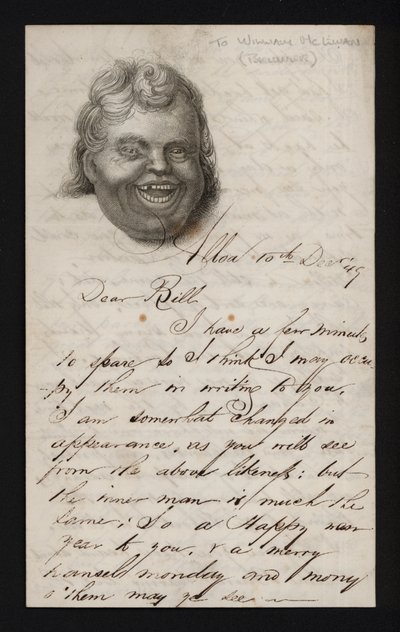 To William McEwan
(Brewer)
Alloa 10th Decr 49
Dear Bill
I have a few minuts
to spare so I think I may occu-
-py them in writing to you.
I am somewhat changed in
appearance, as you will see
from the above likeness: but
the inner man is much the
same; So a Happy new
year to you, & a merry
hansel monday and mony
o' them may ye see.